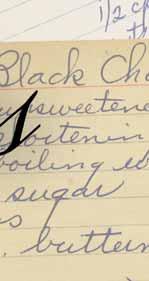 1/2 c
th
Black Cho
unsweetene
shortenin
boiling w
sugar
s
. butterm